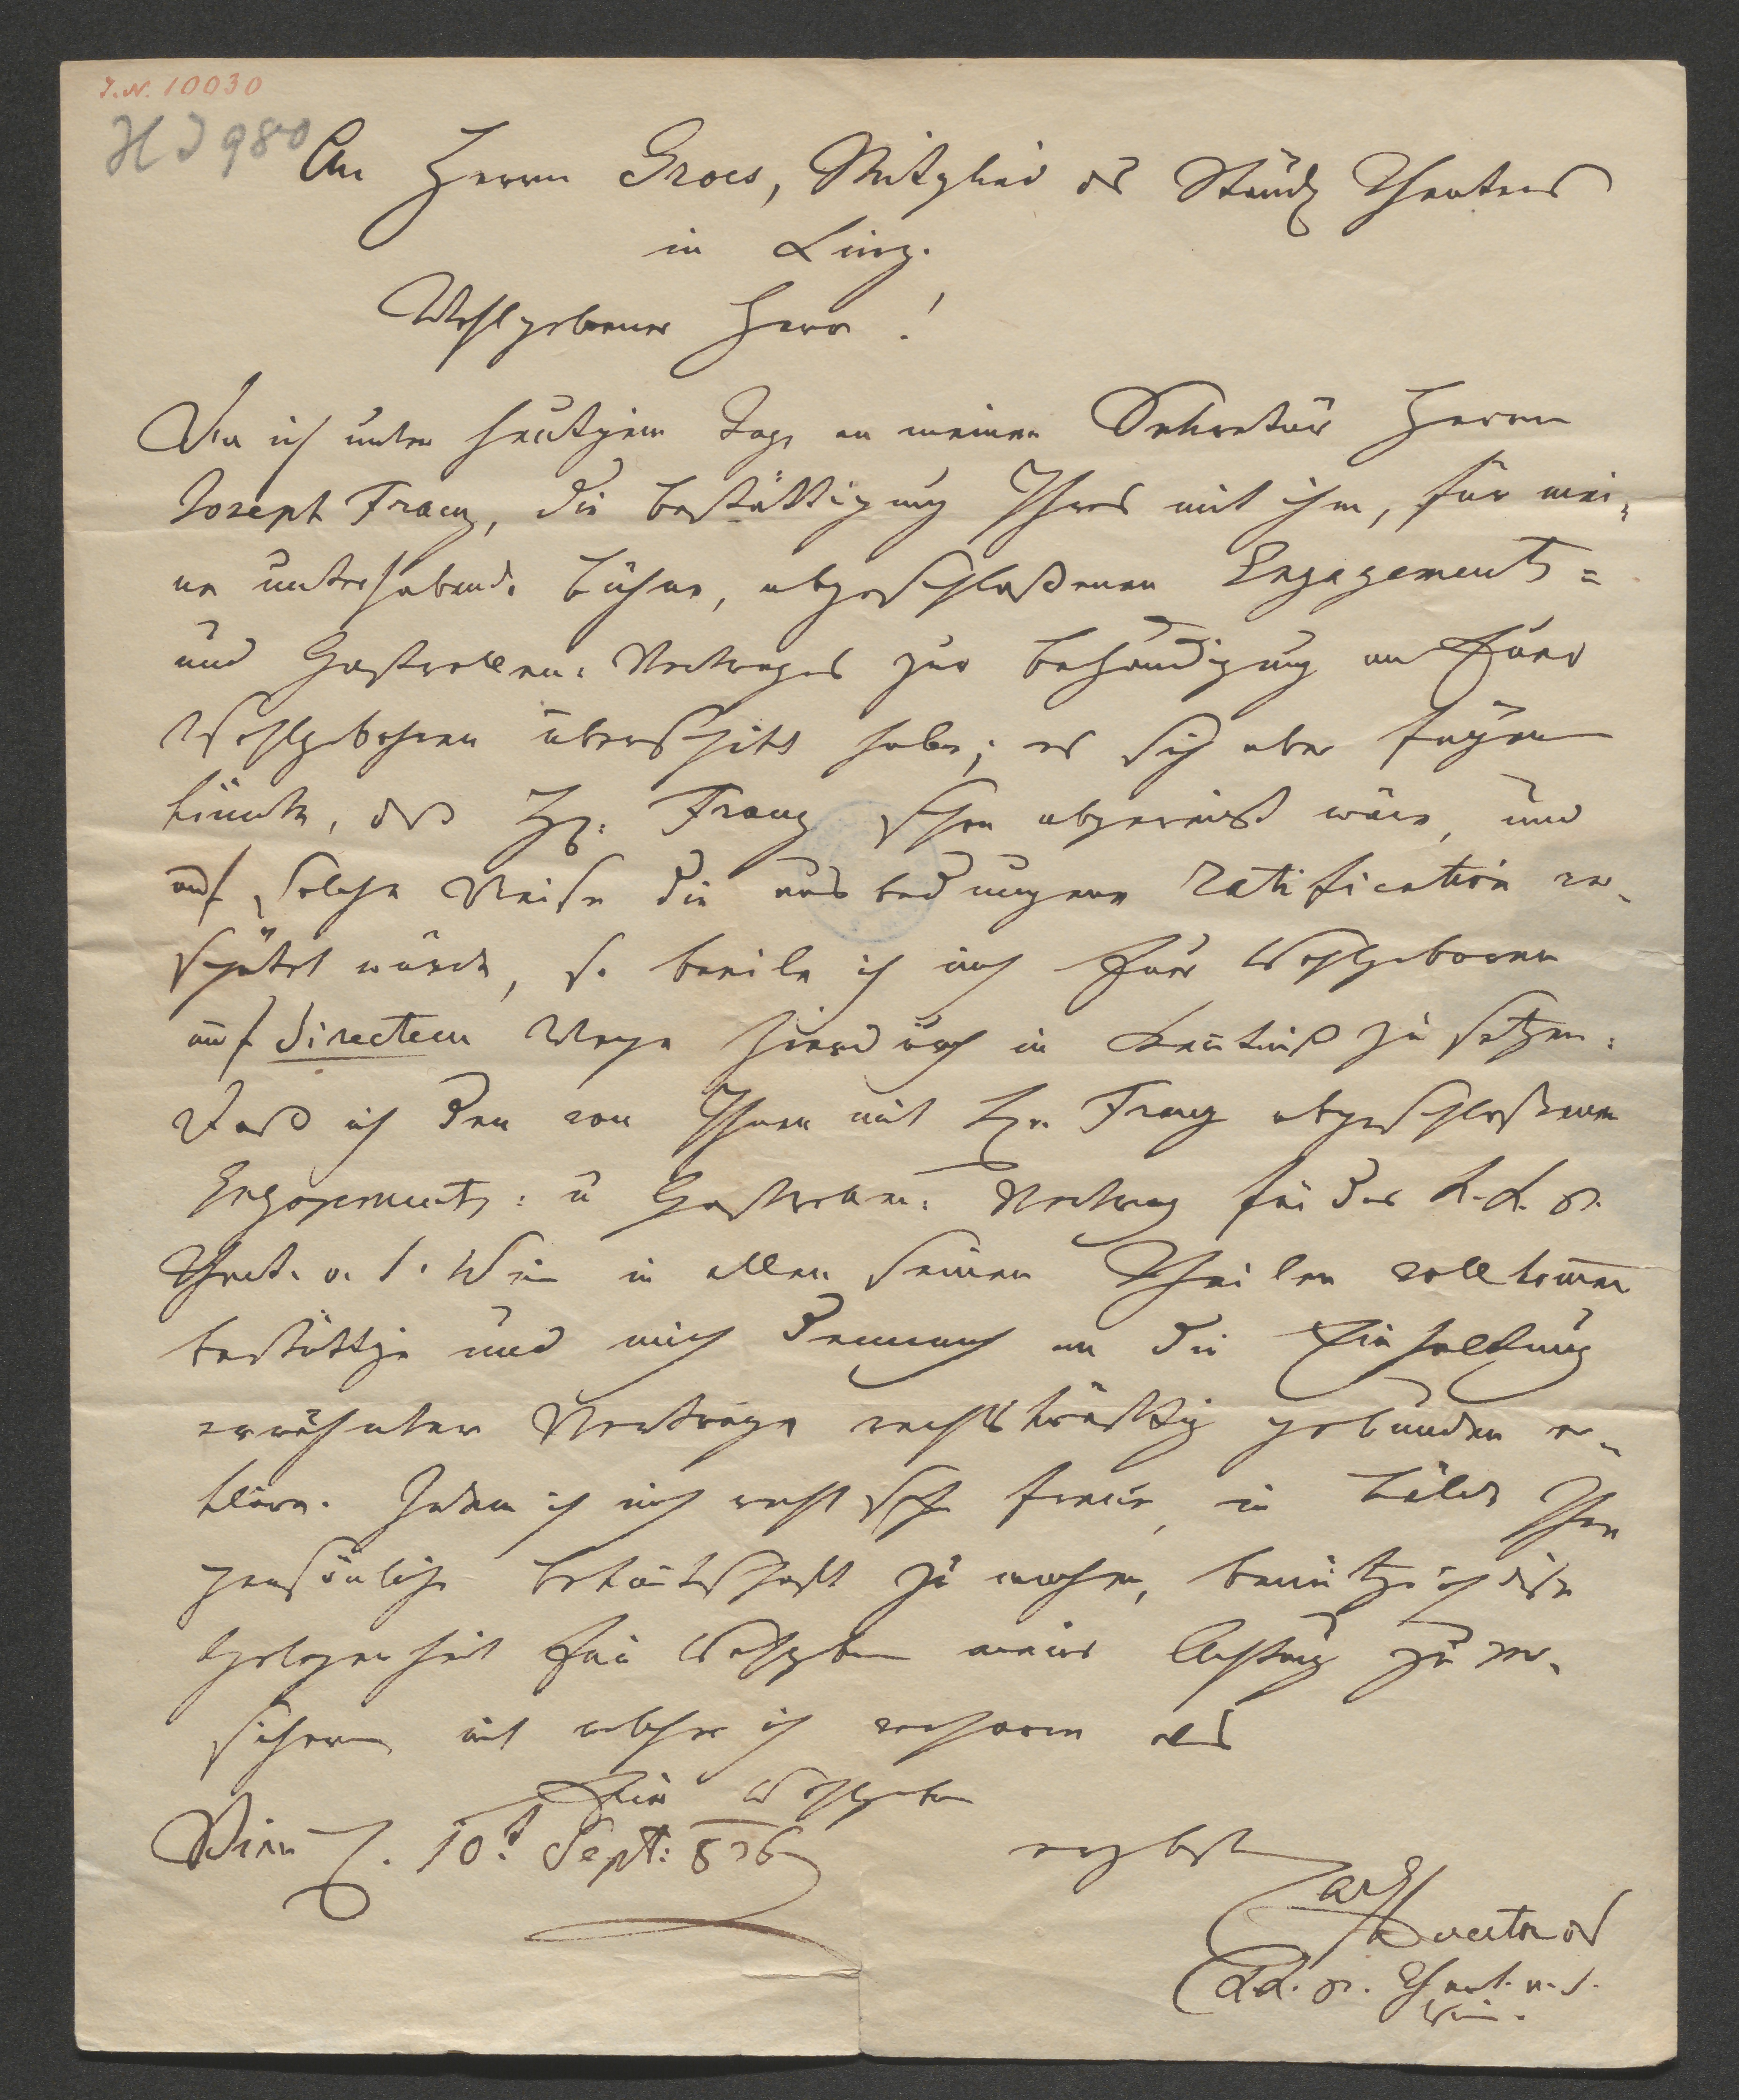 I.N. 10030
H I 980
An Herrn Grois, Mitglied des Ständ. Theaters
in Linz.
Wohlgeborner Herr!
Da ich unter heutigem Tage an meinen Sekretär Herrn
Joseph Franz, die Bestättigung Ihres mit ihm, für mei=
ne unterhabende Bühne, abgeschloßenen Engagements=
und Gastrollen-Vertrages zur Behändigung an Euer
Wohlgebohren überschickt habe; es sich aber fügen
könnte, daß Hr: Franz schon abgereist wäre, und
auf solche Weise die ausbedungene Ratification ver-
spätet würde, so beeile ich mich Euer Wohlgeboren
auf directem Wege hierdurch in Kenntniß zu setzen:
Daß ich den von Ihnen mit Hr. Franz abgeschloßenen
Engagements: u Gastrollen: Vertrag für das K. K. pr.
Theat. a. d. Wien in allen seinen Theilen vollkommen
bestättige und mich demnach an die Einhaltung
erwähnter Verträge rechtskräftig gebunden er-
kläre. Indem ich mich recht sehr freue, in Bälde Ihre
persönliche Bekantschaft zu machen, benütze ich diese
Gelegenheit Euer Wohlgeb meiner Achtung zu ver-
sichern mit welcher ich verharre als
Euer Wohlgeb
Wien d. 10t Sept: 826
ergebst
Carl
Director des
K.K. pr. Theat. a. d.
Wien.